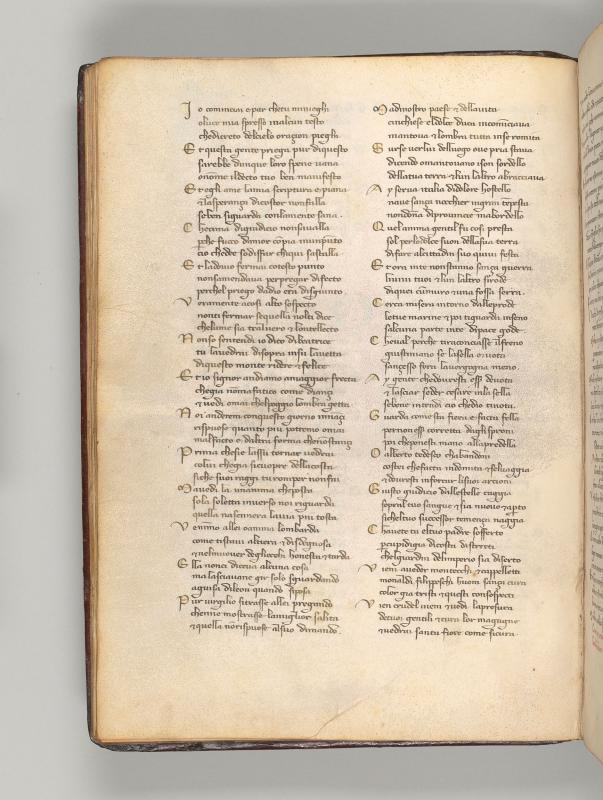 Io cominciai e par chetu minieghi
oluce mia spresso inalcun testo
chedicreto delcielo oraçion pieghi
Et questa gente priega pur diquesto
sarebbe dunque loro spene vana
onome ildecto tuo ben manifesto
Et egli ame lamia scriptura e piana
& lasperança dicostor nonfalla
seben siguarda conlamente sana.
Che cima digiudicio nonsavalla
perche fuoco damor copia inunpunto
cio chedee sodisfar chiqui sastalla
Et ladovio fermai cotesto punto
nonsamendava perpregar difecto
perchel priego dadio era disgiunto.
Veramente acosi alto sospecto
nonti fermar sequella nolti dice
chelume fia tralvero & lontellecto
Nonso sentendi io dico dibeatrice
tu lavedrai disopra insu lavetta
diquesto monte ridere & felice
Et io signor andiamo amaggior fretta
chegia nonmafatico come diançi
& vedi omai chelpoggio lombra getta
Noi andrem conquesto giorno innançi
rispuose quanto piu potremo omai
malfacto e daltra forma chenonstançi
Prima chesie lassu tornar vedrai
colui chegia sicuopre dellacosta
siche suoi raggi tu romper nonfai
Mavedi la unanima cheposta
sola soletta inverso noi riguarda
quella nansegnera lavia piu tosta
Venimo allei oanima lombarda
come tistavi altiera & disdegnosa
& nelmuover degliocchi honesta & tarda
Ella nonci diceva alcuna cosa
ma lasciavane gir solo sguardando
aguisa dileon quando siposa
Pur virgilio sitrasse allei pregando
chenne mostrasse lamiglior salita
& quella nonrispuose alsuo dimando.
Madinostro paese & dellavita
cinchiese eldolce duca incominciava
mantova & lombra tutta inse romita
Surse verlui delluogo ove pria stava
dicendo omantovano ison sordello
dellatua terra & lun laltro abracciava
Ay serva ytalia didolore hostello
nave sança nocchier ingran tempesta
nondonna diprovincie mabordello
Quelanima gentil fu cosi presta
sol perlodolce suon dellasua terra
difare alcittadin suo quivi festa
Et ora inte nonstanno sança guerra
livivi tuoi & lun laltro sirode
diquei cunmuro & una fossa serra.
Cerca misera intorno dalleprode
letue marine & poi tiguarda inseno
salcuna parte inte dipace gode
Cheval perche tiraconciasse ilfreno
giustiniano se lasella e vota
sançesso fora lavergogna meno.
Ay gente chedovresti esser devota
& lasciar seder cesare inla sella
sebene intendi cio chedio tinota.
Guarda come sta fiera e facta fella
pernonesser corretta daglisproni
poi cheponesti mano allapredella
O alberto tedesco chabandoni
costei chefacta indomita & selvaggia
& dovresti inforcar lisuoi arcioni
Giusto giudicio dallestelle caggia
sopral tuo sangue & sia nuovo & apto
sicheltuo successor temença naggia
Chavete tu eltuo padre sofferto
percupidigia dicosta distretti
chelgiardin delimperio sia diserto
Vieni aveder montecchi & cappelletti
monaldi filippeschi huom sança cura
color gia tristi & questi consospecti
Vien crudel vieni & vedi lapresura
detuoi gentili & cura lor magagne
& vedrai santa fiore come sicura.